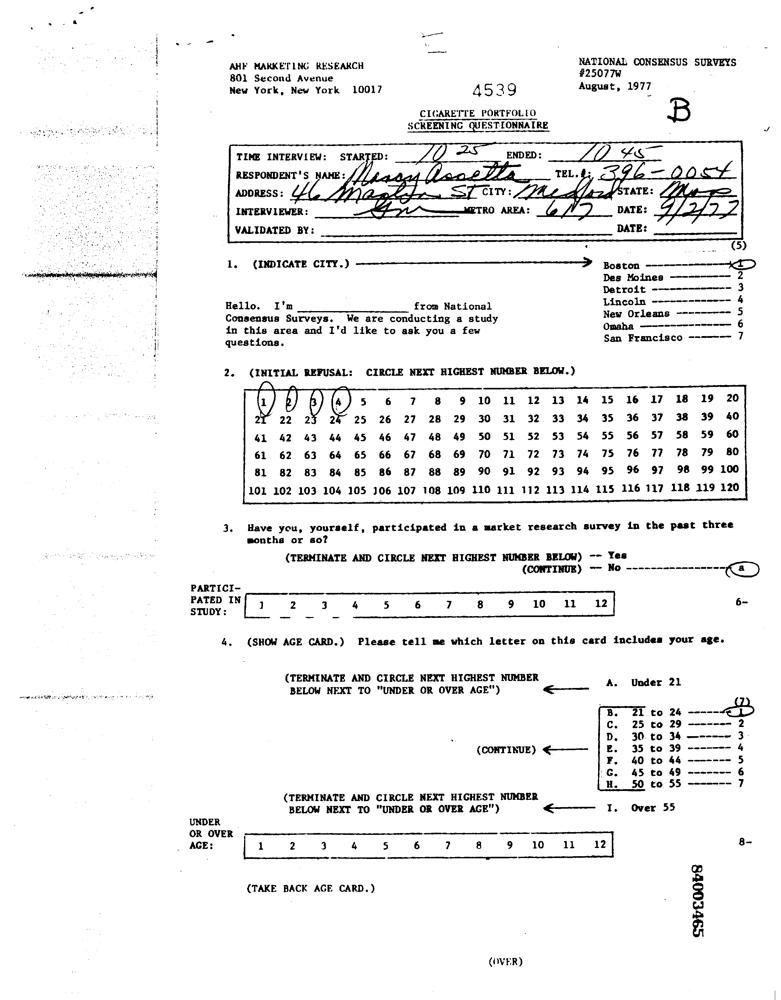 AHF MARKETING RESEARCH
801 Second Avenue
New York, New York 10017
4539
NATIONAL CONSENSUS SURVEYS
#25077W
August, 1977
B
CIGARETTE PORTFOLIO
SCREENING QUESTIONNAIRE
TIME INTERVIEW: STARTED: 10 25 ENDED: 10 45
RESPONDENT'S NAME: TEL.#: 396-0054
ADDRESS: 46 ST CITY: Medford STATE: Mass
INTERVIEWER: METRO AREA: DATE: 9/2/77
VALIDATED BY: DATE:
(5)
1. (INDICATE CITY.)
Boston 1
Des Moines 2
Detroit 3
Lincoln 4
New Orleans 5
Omaha 6
San Francisco 7
Hello. I'm ____________ from National
Consensus Surveys. We are conducting a study
in this area and I'd like to ask you a few
questions.
2. (INITIAL REFUSAL: CIRCLE NEXT HIGHEST NUMBER BELOW.)
1 2 3 4 5 6 7 8 9 10 11 12 13 14 15 16 17 18 19 20
21 22 23 24 25 26 27 28 29 30 31 32 33 34 35 36 37 38 39 40
41 42 43 44 45 46 47 48 49 50 51 52 53 54 55 56 57 58 59 60
61 62 63 64 65 66 67 68 69 70 71 72 73 74 75 76 77 78 79 80
81 82 83 84 85 86 87 88 89 90 91 92 93 94 95 96 97 98 99 100
101 102 103 104 105 106 107 108 109 110 111 112 113 114 115 116 117 118 119 120
3. Have you, yourself, participated in a market research survey in the past three
months or so?
(TERMINATE AND CIRCLE NEXT HIGHEST NUMBER BELOW) -- Yes
(CONTINUE) -- No ---------------- a
PARTICI-
PATED IN
STUDY:
1 2 3 4 5 6 7 8 9 10 11 12
6-
4. (SHOW AGE CARD.) Please tell me which letter on this card includes your age.
(TERMINATE AND CIRCLE NEXT HIGHEST NUMBER
BELOW NEXT TO "UNDER OR OVER AGE")
A. Under 21
(7)
B. 21 to 24 ------ 1
C. 25 to 29 ------- 2
D. 30 to 34 ------- 3
(CONTINUE)
E. 35 to 39 ------- 4
F. 40 to 44 ------- 5
G. 45 to 49 ------- 6
H. 50 to 55 ------- 7
(TERMINATE AND CIRCLE NEXT HIGHEST NUMBER
BELOW NEXT TO "UNDER OR OVER AGE")
I. Over 55
UNDER
OR OVER
AGE:
1 2 3 4 5 6 7 8 9 10 11 12
8-
(TAKE BACK AGE CARD.)
84003465
(OVER)